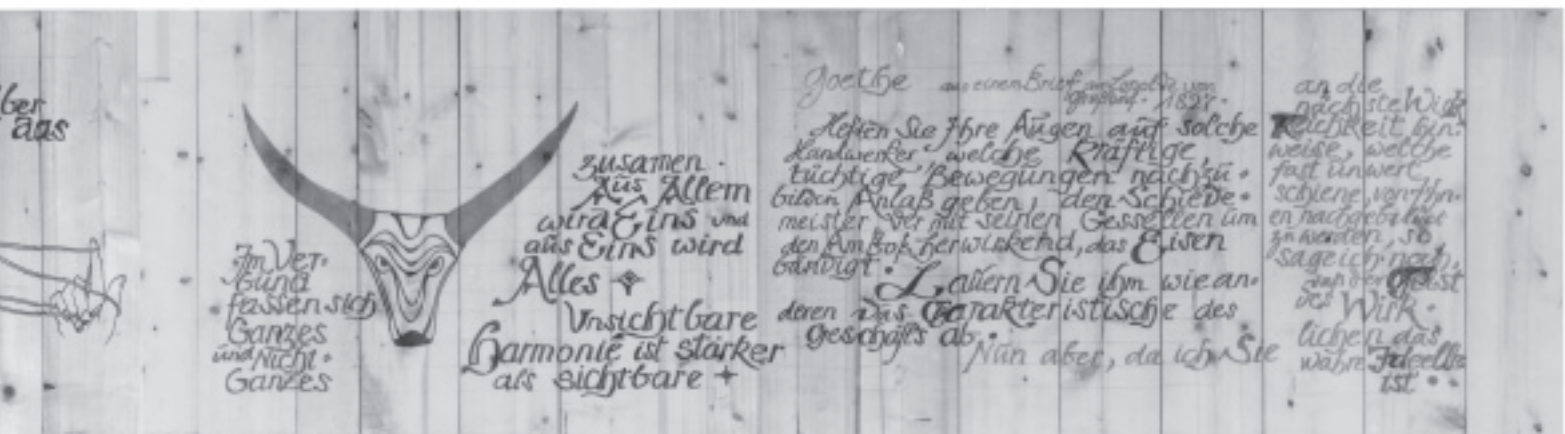 ber
aus
Im Ver-
bund
fassen sich
Ganzes
und Nicht-
Ganzes
zusamen
Aus Allem
wird Eins und
aus Eins wird
Alles
Unsichtbare
Harmonie ist stärker
als sichtbare
Goethe aus einem Brief an Leopold von
1827.
Heften Sie Ihre Augen auf solche
Handwerker welche kräftige,
tüchtige Bewegungen nachzu-
bilden Anlaß geben, den Schiede-
meister der mit seinen Gessellen um
den Ambos herwirkend, das Eisen
bändigt.
Lauern Sie ihm wie an-
deren das Charakteristische des
Geschäfts ab.
Nun aber, da ich Sie
an die
nächste Wirk
lichkeit hin-
weise, welche
fast unwert
schiene, von Ihn-
en nachgebildet
zu werden, so
sage ich noch,
daß der Geist
des Wirk-
lichen das
wahre Ideelle
ist